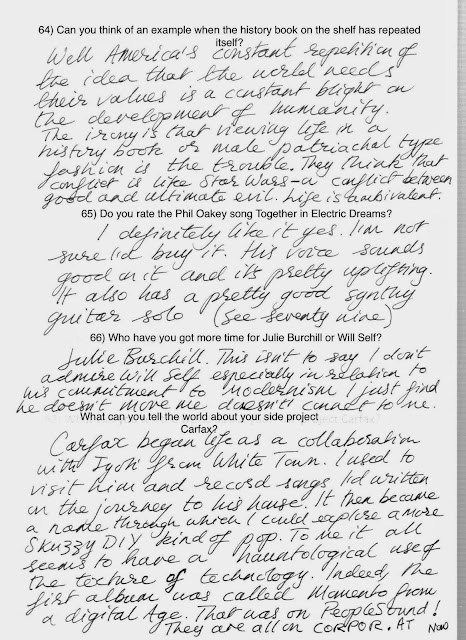 64) Can you think of an example when the history book on the shelf has repeated
itself?
Well America's constant repetition of
the idea that the world needs
their values is a constant blight on
the development of humanity.
The irony is that viewing life in a
history book or male patriachal type
fashion is the trouble. They think that
conflict is like Star Wars - a conflict between
good and ultimate evil. Life is ambivalent.
65) Do you rate the Phil Oakey song Together in Electric Dreams?
I definitely like it yes. I'm not
sure I'd buy it. His voice sounds
good on it and it's pretty uplifting.
It also has a pretty good synthy
guitar solo (see seventy nine)
66) Who have you got more time for Julie Burchill or Will Self?
Julie Burchill. This isn't to say I don't
admire Will Self especially in relation to
his commitment to Modernism I just find
he doesn't move me doesn't connect to me.
What can you tell the world about your side project
Carfax?
Carfax began life as a collaboration
with Jyoti from White Town. I used to
visit him and record songs I'd written
on the journey to his house. It then became
a name through which I could explore a more
Skuzzy DIY kind of pop. To me it all
seems to have a hauntological use of
the texture of technology. Indeed, the
first album was called Memento from
a digital Age. That was on PeopleSound!
They are all on CORPOR.AT now